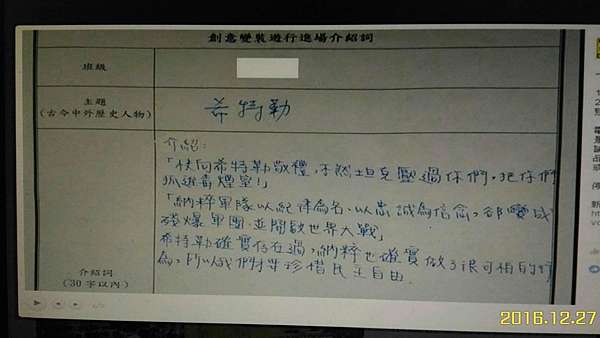 創意變裝遊行進場介紹詞
班級
主題
(古今中外歷史人物)
希特勒
介紹:
「快向希特勒敬禮,不然坦克壓過你們,把你們
抓進毒煙室!」
「納粹軍隊以紀律為名、以忠誠為信念,卻變成
殘爆軍團,並開啟世界大戰」
希特勒確實存在過,納粹也確實做了很可怕的行
為,所以我們特要珍惜民主自由.
介紹詞
(30字以內)
2016.12.27